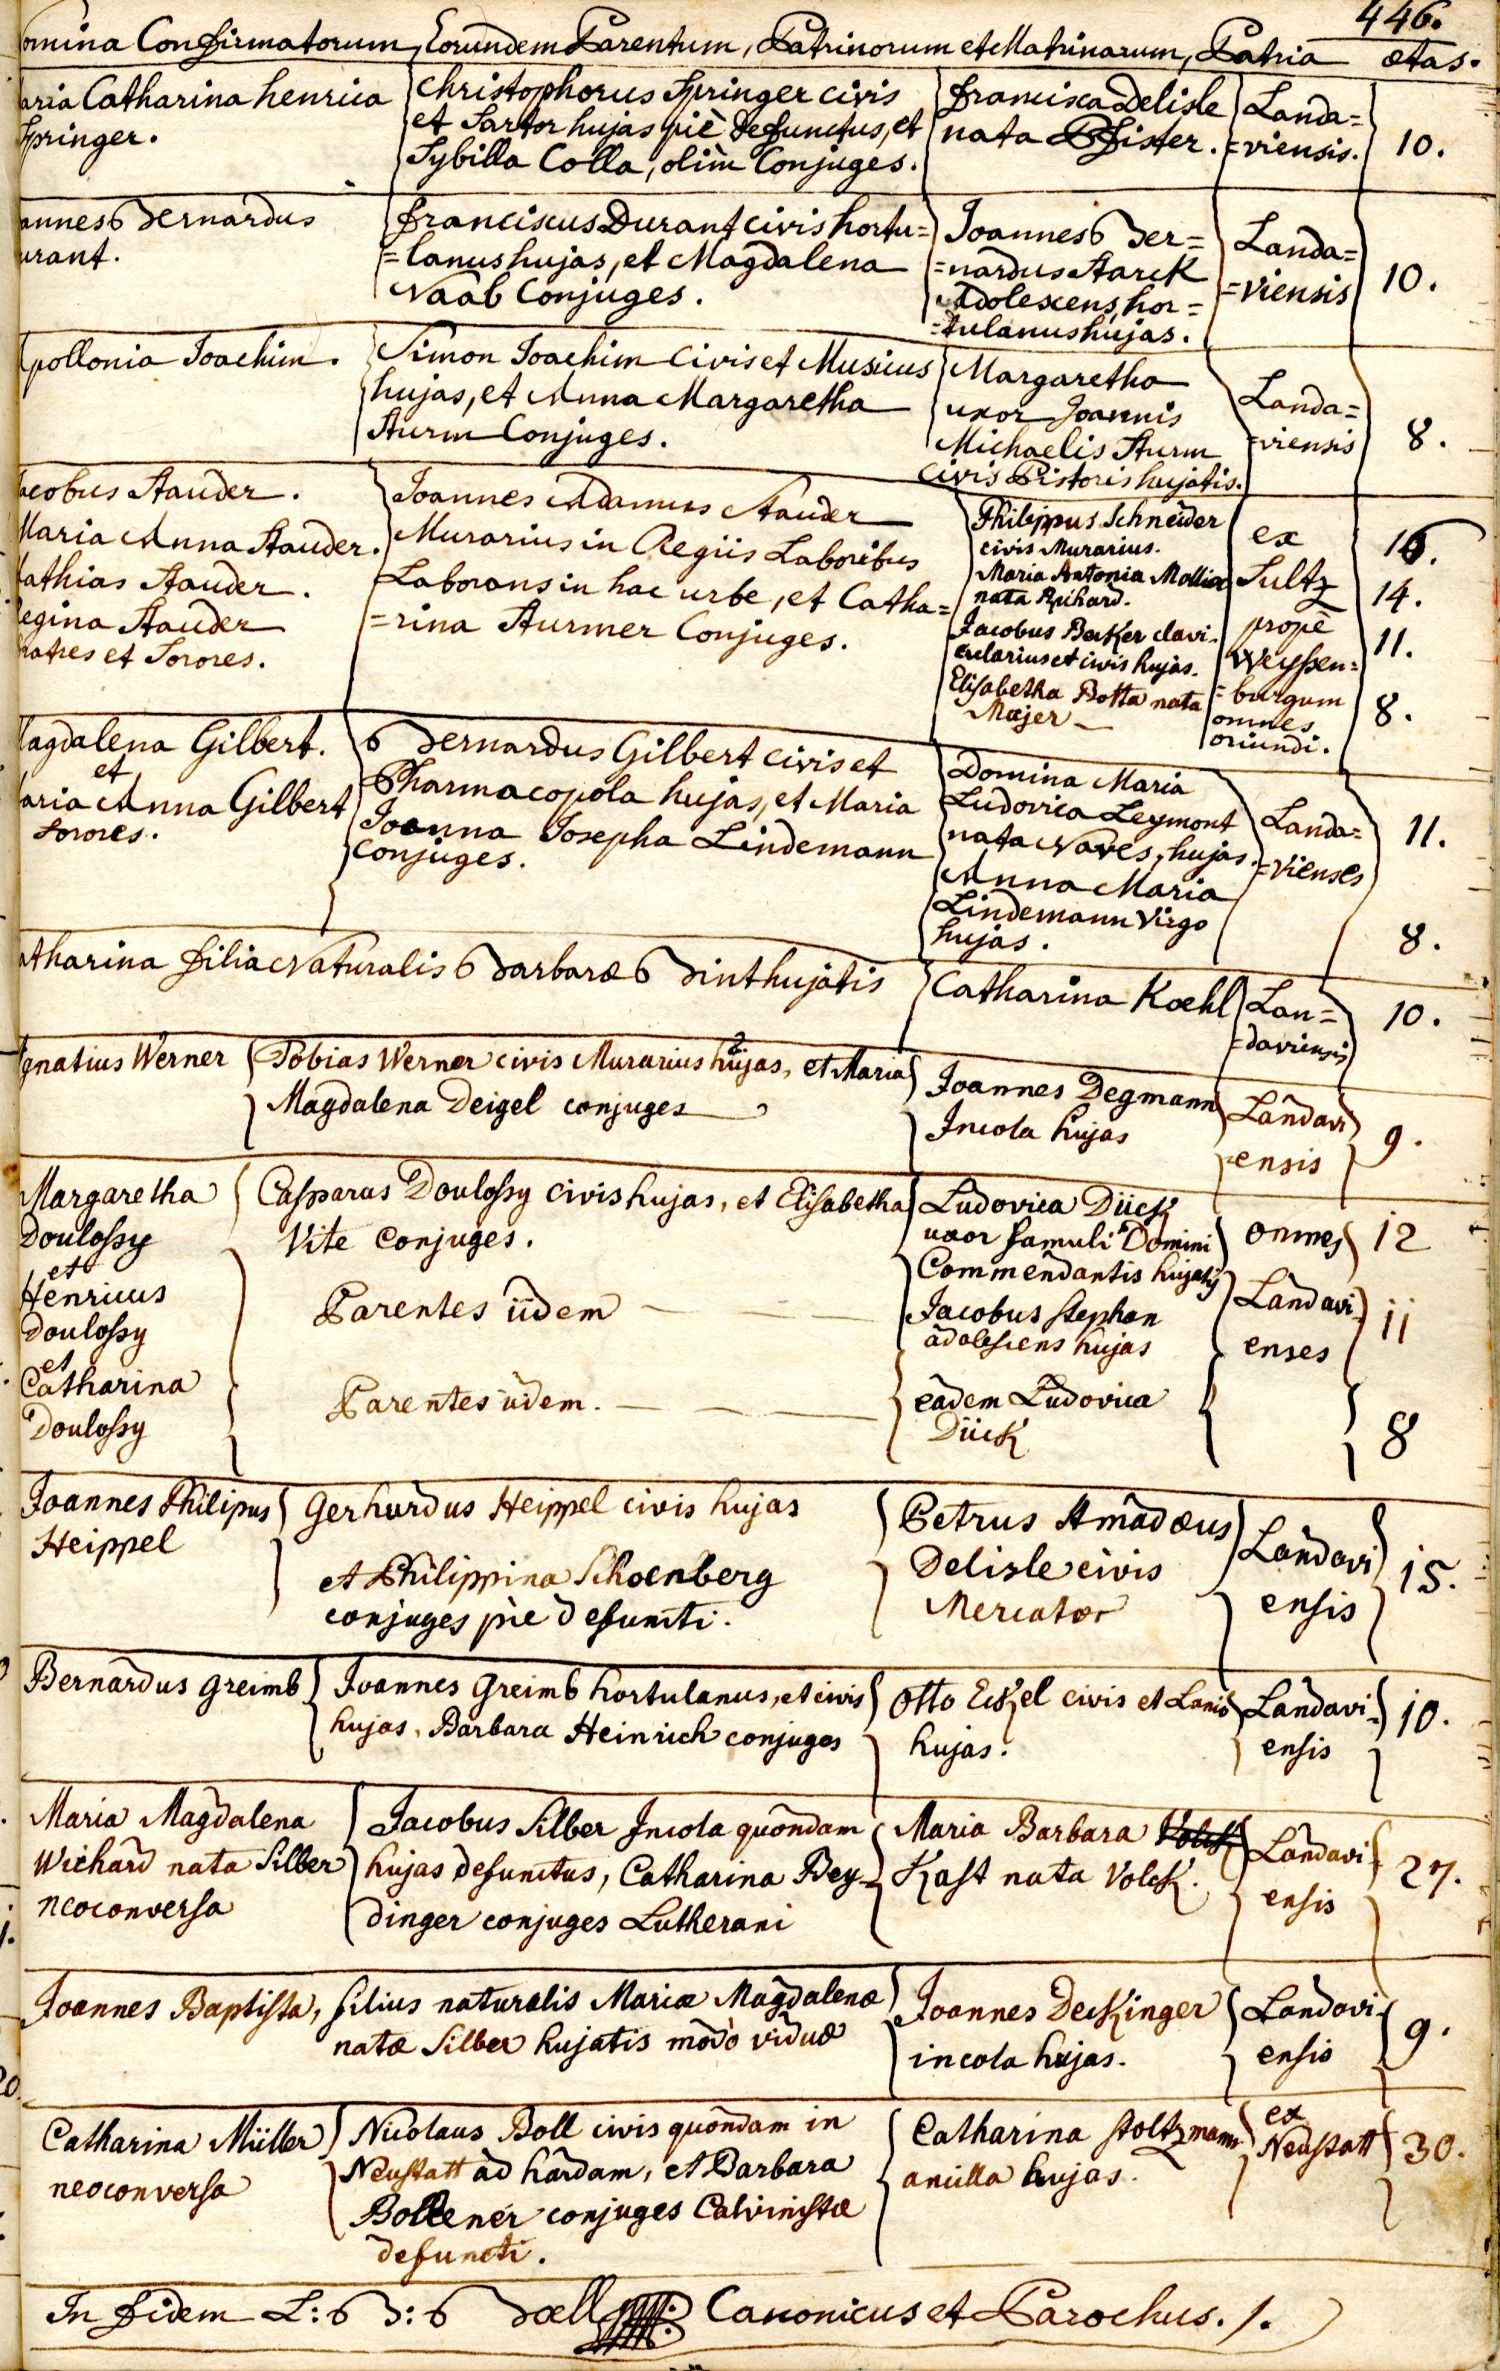 446.
omina Confirmatorum, Eorundem Parentum, Patrinorum et Matrinarum, Patria ætas.
aria Catharina henrica
Springer.
Christophorus Springer civis
et Sartor hujas piè defunctus, et
Sybilla Colla, olim Conjuges.
francisca Delisle
nata Pfister.
Landa=
=viensis.
10.
annes Bernardus
urant.
franciscus Durant civis hortu=
=lanus hujas, et Magdalena
Naab Conjuges.
Joannes Ber=
=nardus Starck
Adolescens, hor=
=tulanus hujas.
Landa=
=viensis
10.
pollonia Joachim.
Simon Joachim Civis et Musicus
hujas, et Anna Margaretha
Sturm Conjuges.
Margaretha
uxor Joannis
Michaelis Sturm
Civis Pistoris hujatis.
Landa=
=viensis
8.
acobus Stauder.
Maria Anna Stauder.
athias Stauder.
egina Stauder
ratres et Sorores.
Joannes Adamus Stauder
Murarius in Regiis Laboribus
Laborans in hac urbe, et Catha=
=rina Sturmer Conjuges.
Philippus Schneider
civis Murarius.
Maria Antonia
nata Richard.
Jacobus Becker clavi=
cularius et civis hujas.
Elisabetha Botta nata
Majer
ex
Sultz
propè
Weyssen=
=burgum
omnes
oriundi.
16.
14.
11.
8.
agdalena Gilbert.
et
aria Anna Gilbert
Sorores.
Bernardus Gilbert civis et
Pharmacopola hujas, et Maria
Joanna Josepha Lindemann
Conjuges.
Domina Maria
Ludovica Leymont
nata Naves, hujas.
Anna Maria
Lindemann Virgo
hujas.
Landa=
=vienses
11.
8.
atharina filia Naturalis Barbaræ Bint hujatis
Catharina Koehl
Lan=
=daviensis
10.
gnatius Werner
Tobias Werner civis Murarius hujas, et Maria
Magdalena Deigel conjuges
Joannes Degmann
Incola hujas
Landavi
ensis
9.
Margaretha
Doulossy
et
Henricus
Doulossy
et
Catharina
Doulossy
Casparus Doulossy civis hujas, et Elisabetha
Vite Conjuges.
Parentes iidem
Parentes iidem.
Ludovica Dück
uxor famuli Domini
Commendantis hujatis
Jacobus Stephan
adolescens hujas
eadem Ludovica
Dück
omnes
Landavi
enses
12
11
8
Joannes Philipus
Heippel
Gerhardus Heippel civis hujas
et Philippina Schoenberg
conjuges piè defuncti.
Petrus Amadæus
Delisle civis
Mercator
Landavi
ensis
15.
Bernardus Greimb
Joannes Greimb hortulanus, et civis
hujas, Barbara Heinrich conjuges
Otto Eckel civis et Lanio
hujas.
Landavi=
ensis
10.
Maria Magdalena
Wichard nata Silber
neoconversa
Jacobus Silber Incola quondam
hujas defunctus, Catharina Bey=
dinger conjuges Lutherani
Maria Barbara Volck
Kast nata Volck.
Landavi
ensis
27.
Joannes Baptista,
filius naturalis Mariæ Magdalenæ
natæ Silber hujatis modò viduæ
Joannes Deckinger
incola hujas.
Landavi
ensis
9.
Catharina Müller
neoconversa
Nicolaus Boll civis quondam in
Neustatt ad hardam, et Barbara
Bollener conjuges Calvinistæ
defuncti.
Catharina Stoltzmann
ancilla hujas.
ex
Neustatt
30.
In fidem L: B: Bœll Canonicus et Parochus.